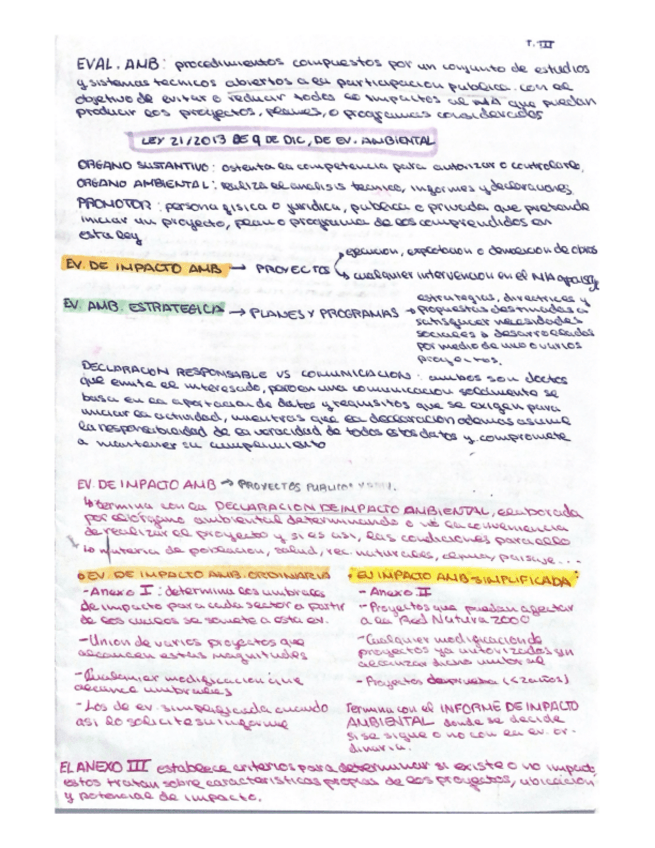 T. III
EVAL. AMB: procedimientos compuestos por un conjunto de estudios
y sistemas tecnicos abiertos a la participacion publica. con el
objetivo de evitar o reducir todos los impactos al MA que puedan
producir los proyectos, planes, o programas considerados
LEY 21/2013 DE 9 DE DIC, DE EV. AMBIENTAL
ORGANO SUSTANTIVO: ostenta la competencia para autorizar o controlarlo,
ORGANO AMBIENTAL: realiza el analisis tecnico, informes y declaraciones
PROMOTOR: persona fisica o juridica, publica o privada que pretende
iniciar un proyecto, plan o programa de los comprendidos en
esta ley
EV. DE IMPACTO AMB → PROYECTOS ejecucion, explotacion o demolicion de obras
cualquier intervencion en el MA
EV. AMB. ESTRATEGICA → PLANES Y PROGRAMAS → estrategias, directrices y
propuestas destinadas a
satisfacer necesidades
sociales o desarrollados
por medio de uno o varios
proyectos.
DECLARACION RESPONSABLE VS COMUNICACION: ambos son doctos
que emite el interesado, pero en una comunicacion solamente se
basa en la aportacion de datos y requisitos que se exigen para
iniciar la actividad, mientras que la declaracion ademas asume
la responsabilidad de la veracidad de todos estos datos y compromete
a mantener su cumplimiento
EV. DE IMPACTO AMB → PROYECTOS PUBLICOS
↳ termina con la DECLARACION DE IMPACTO AMBIENTAL, elaborada
por el organo ambiental determinando o no la conveniencia
de realizar el proyecto y si es asi, las condiciones para ello
↳ materia de poblacion, salud, rec. naturales, clima, paisaje...
• EV. DE IMPACTO AMB. ORDINARIA
- Anexo I: determina los umbrales
de impacto para cada sector a partir
de los cuales se somete a esta ev.
- Union de varios proyectos que
alcancen estas magnitudes
- Cualquier modificacion que
alcance umbrales
- Los de ev. simplificada cuando
asi lo solicite su informe
• EV IMPACTO AMB SIMPLIFICADA
- Anexo II
- Proyectos que puedan afectar
a la Red Natura 2000
- Cualquier modificacion de
proyectos ya autorizados sin
alcanzar dicho umbral
- Proyectos de prueba (<2 años)
Termina con el INFORME DE IMPACTO
AMBIENTAL donde se decide
si se sigue o no con la ev. or-
dinaria.
EL ANEXO III establece criterios para determinar si existe o no impacto,
estos tratan sobre caracteristicas propias de los proyectos, ubicacion
y potencial de impacto.